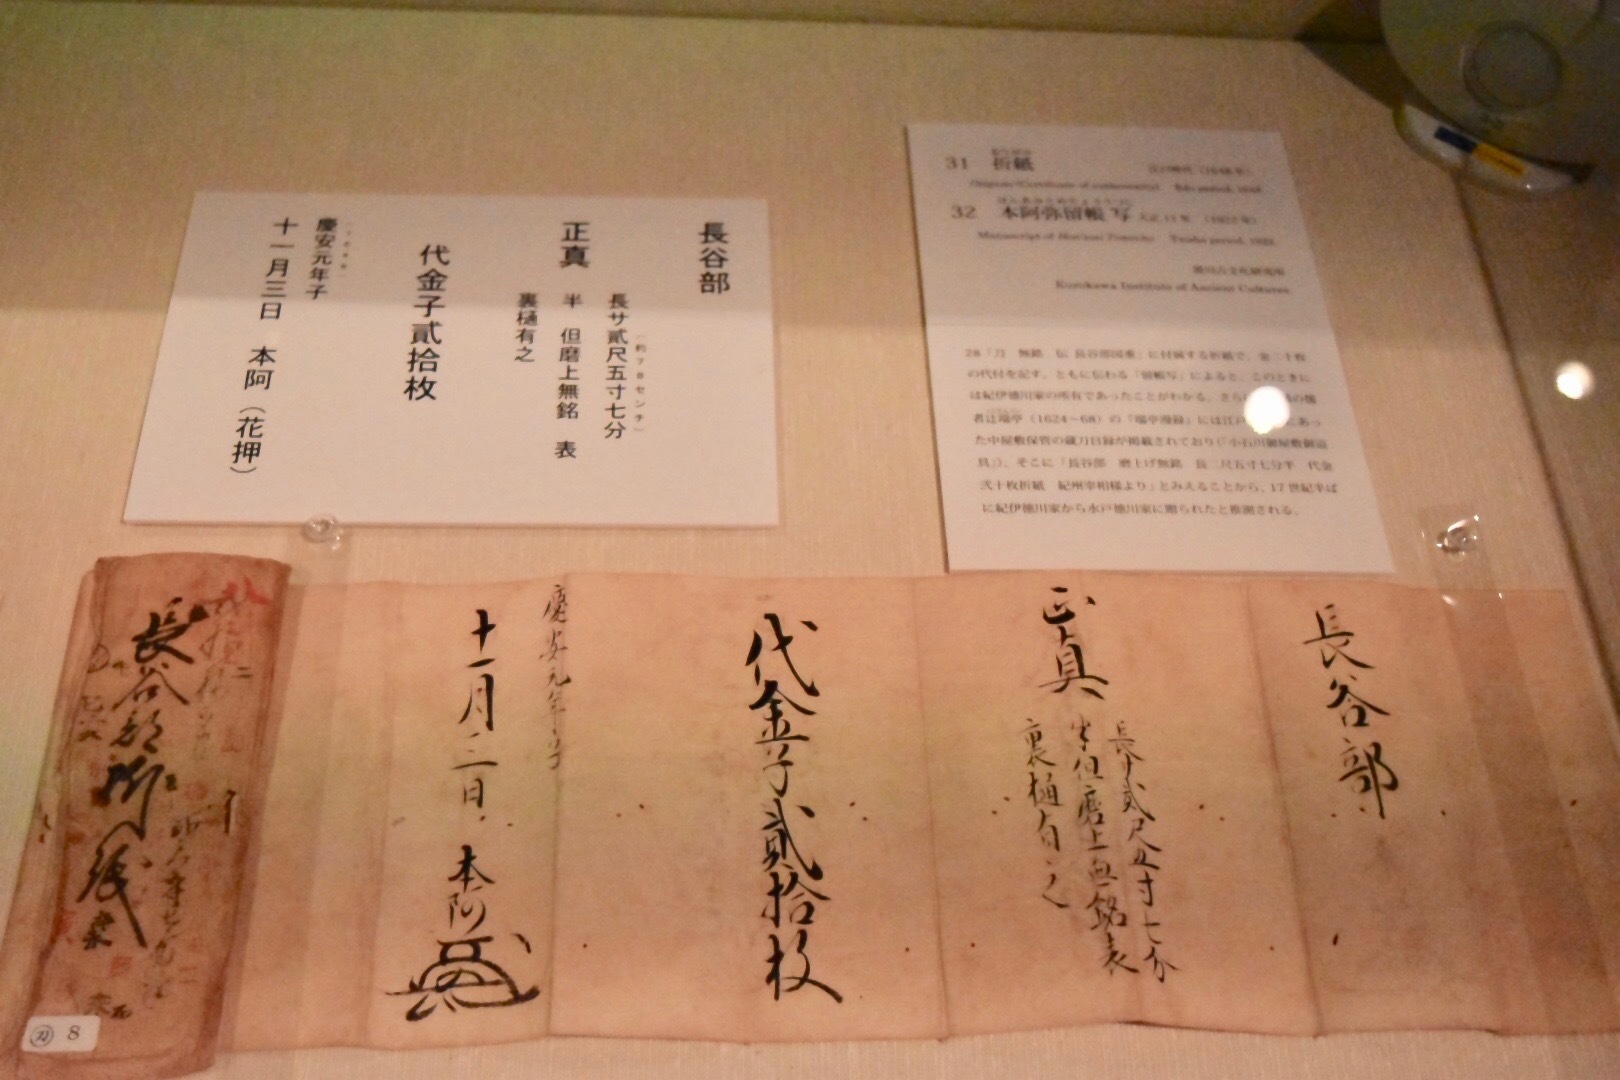 長谷部
正真
長サ貳尺五寸七分
(約78センチ)
半 但磨上無銘 表
裏樋有之
代金子貳拾枚
慶安元年子
十一月三日 本阿(花押)
31 折紙
32 本阿弥留帳 写 大正11年 (1922年)
Manuscript of Hon'ami Tomecho Taisho period, 1922
黒川古文化研究所
Kurokawa Institute of Ancient Cultures
28「刀 無銘 伝 長谷部国重」に付属する折紙で、金二十枚
の代付を記す。ともに伝わる「留帳写」によると、このときに
は紀伊徳川家の所有であったことがわかる。さらに
者辻端亭(1624〜68)の「端亭漫録」には江戸
た中屋敷保管の蔵刀目録が掲載されており(「小石川御屋敷御道
具」)、そこに「長谷部 磨上げ無銘 長二尺五寸七分半 代金
弐十枚折紙 紀州宰相様より」とみえることから、17世紀半ば
に紀伊徳川家から水戸徳川家に贈られたと推測される。
長谷部
正真
長サ貳尺五寸七分
半但磨上無銘表
裏樋有之
代金子貳拾枚
慶安元年子
十一月三日 本阿
長谷部折紙
刀 8